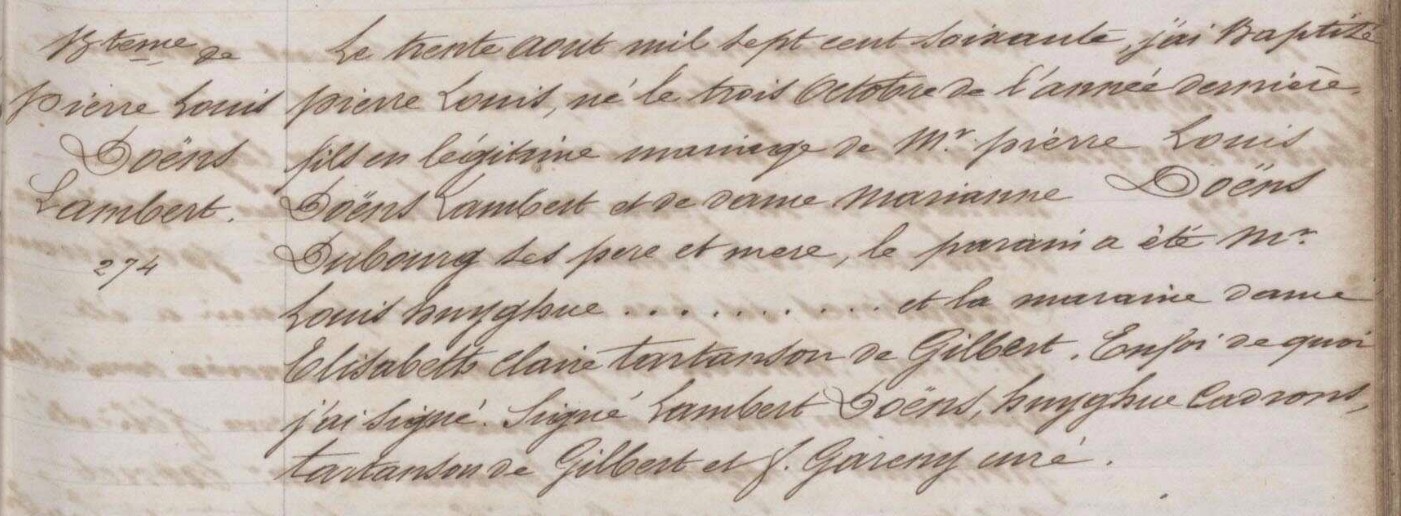 Bteme de
Pierre Louis
Doëns
Lambert.
274
Le trente aout mil sept cent soixante, j'ai Baptisé
pierre Louis, né le trois Octobre de l'année dernière
fils en légitime mariage de Mr. pierre Louis
Doëns Lambert et de dame Marianne Doëns
Dubourg ses pere et mere, le parain a été Mr
Louis huyghue . . . . . . . . . et la maraine dame
Elisabeth Claire tartanson de Gilbert. En foi de quoi
j'ai signé. Signé Lambert Doëns, huyghue Cadrons,
tartanson de Gilbert et f. Gareny curé.